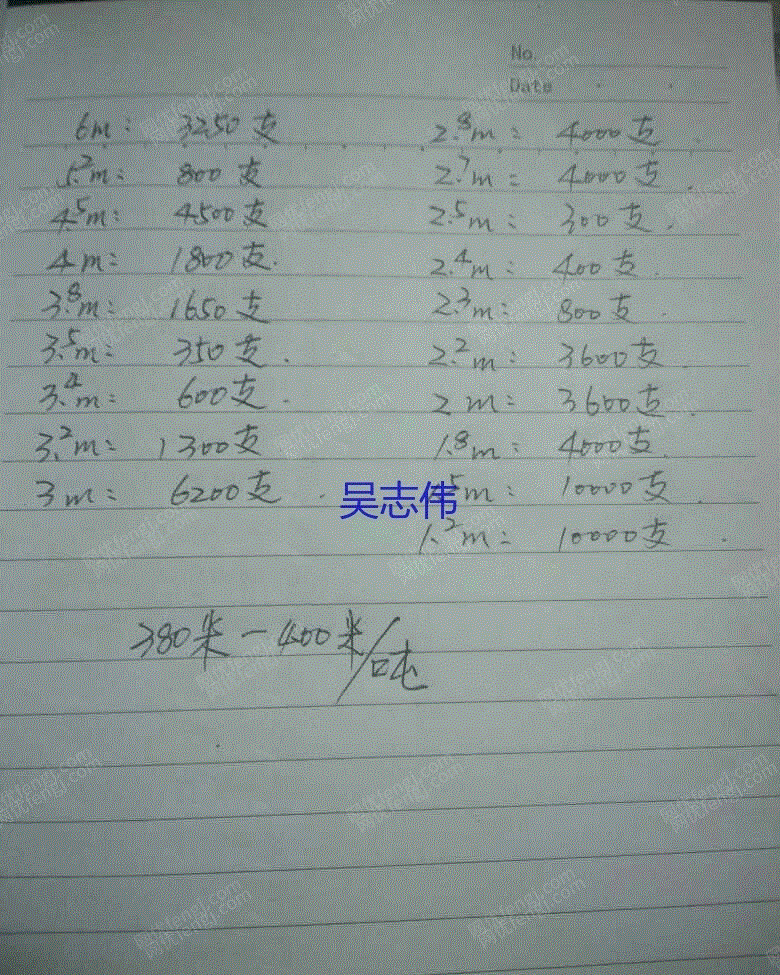 No
Date
6m: 3250支
5.2m: 800支
4.5m: 4500支
4m: 1800支.
3.8m: 1650支
3.5m: 350支.
3.4m: 600支.
3.2m: 1300支
3m: 6200支.
2.8m: 4000支.
2.7m: 4000支.
2.5m: 300支.
2.4m: 400支.
2.3m: 800支.
2.2m: 3600支.
2m: 3600支.
1.8m: 4000支.
吴志伟
.5m: 10000支.
1.2m: 10000支.
380米-400米/吨